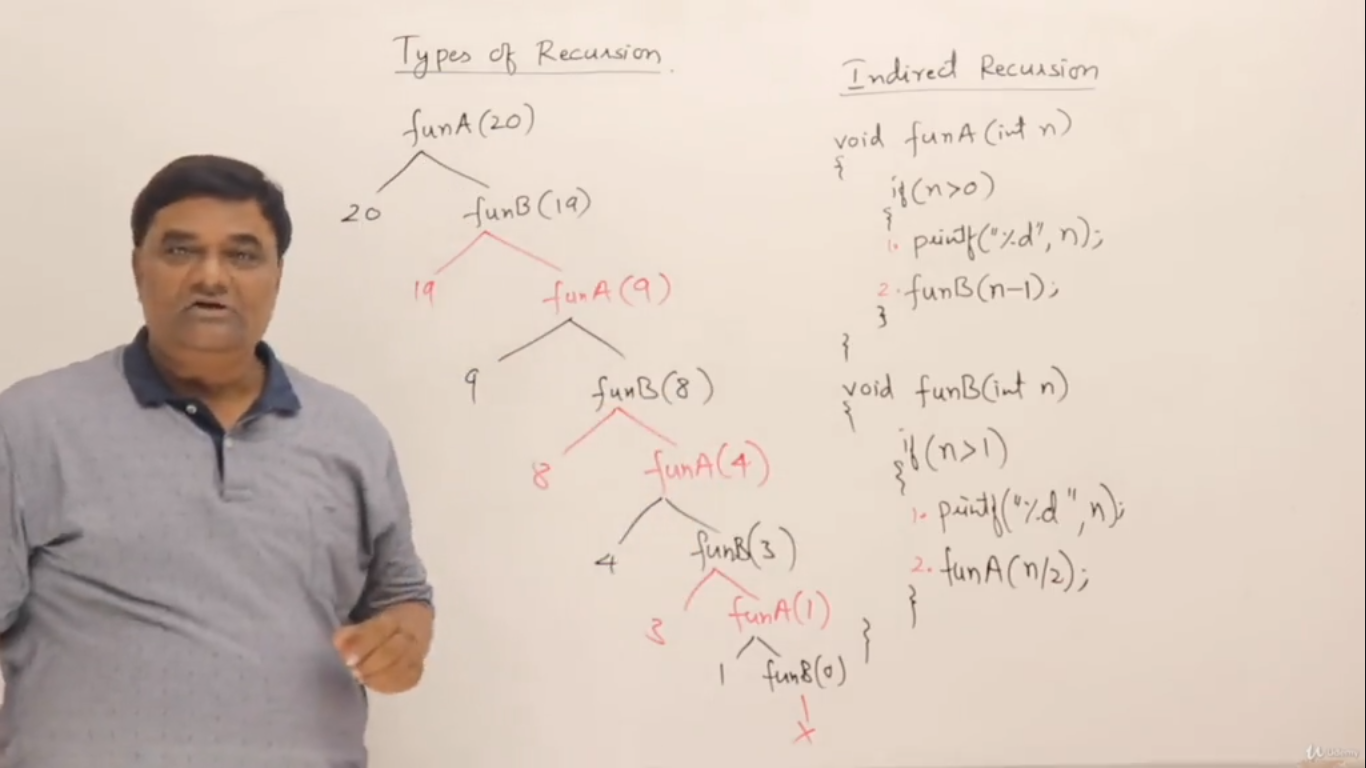 Types of Recursion.
funA(20)
20
funB(19)
19
funA(9)
9
funB(8)
8
funA(4)
4
funB(3)
3
funA(1)
1
funB(0)
x
Indirect Recursion
void funA(int n)
{
if(n>0)
{
1. printf("%d", n);
2. funB(n-1);
}
}
void funB(int n)
{
if(n>1)
{
1. printf("%d", n);
2. funA(n/2);
}
}
Udemy